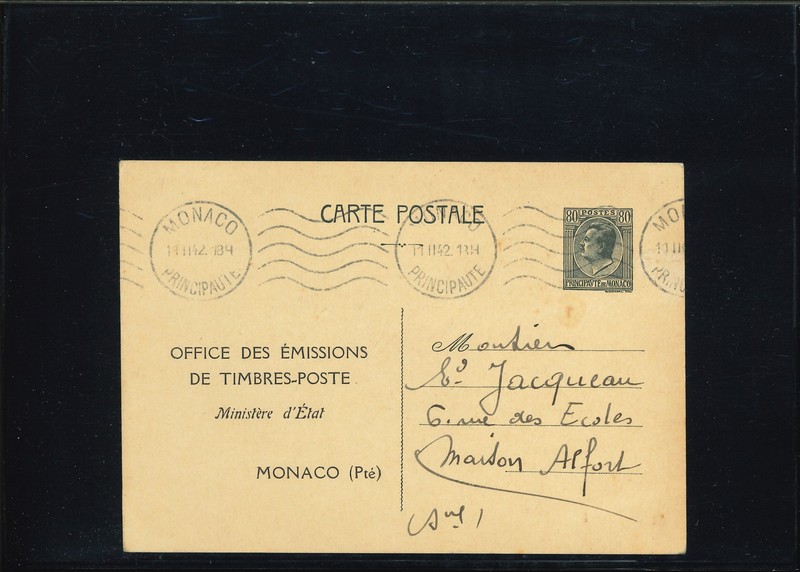 CARTE POSTALE
MONACO
11 II 42. 18H
PRINCIPAUTÉ
MONACO
11 II 42. 18H
PRINCIPAUTÉ
80 POSTES 80
PRINCIPAVTE DE MONACO
MO
11 II
PRIN
OFFICE DES ÉMISSIONS
DE TIMBRES-POSTE
Ministère d'État
MONACO (Pté)
Monsieur
Ed Jacqueau
6. rue des Ecoles
Maison Alfort